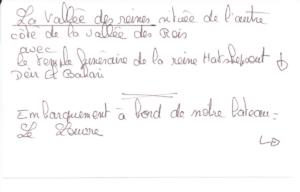 La Vallée des reines située de l'autre
côté de la vallée des Rois
avec
le temple funéraire de la reine Hatshepout
Deir El Bahari
Embarquement à bord de notre bateau:
Le Louvre